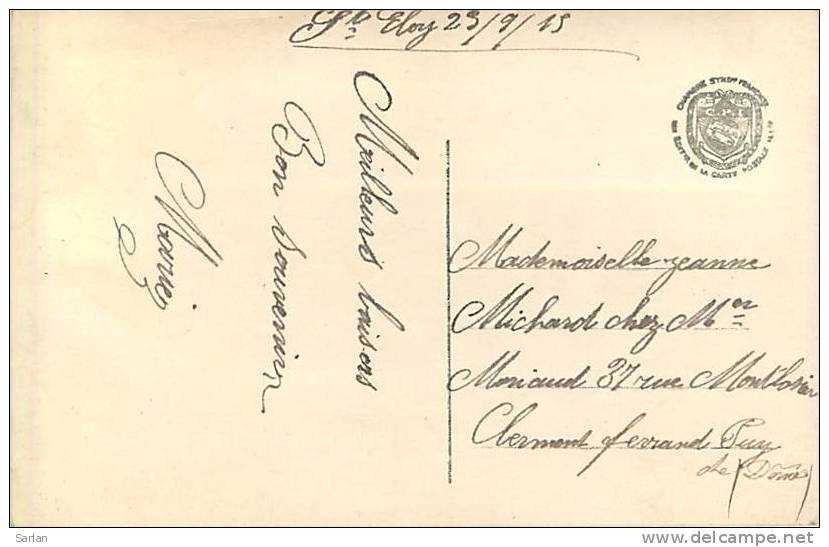 St Eloy 23/9/15
Meilleurs baisers
Bon souvenir
Marie
Mademoiselle Jeanne
Michard chez Mer
Moniaud 37 rue Montlosier
Clermont ferrand Puy
de (Dôme)
CHAMBRE SYNDle FRANÇAISE
DE LA CARTE POSTALE
Sarlan
www.delcampe.net